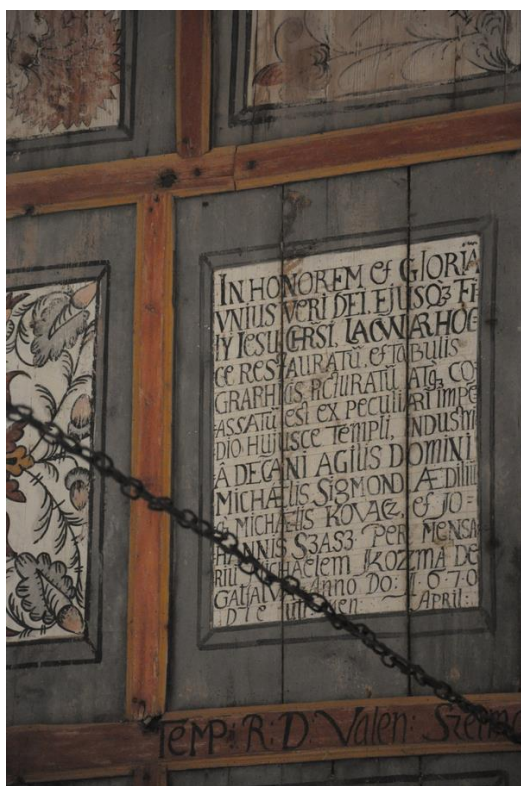 IN HONOREM et GlORIA
VNIUS VERI DEI. EJUSQ3 FI
IY IESU CERSI. LACUNAR HOC
CE RESTAURATŪ, et TABULIS
GRAPHICIS PICTURATŪ ATQ3 CO
ASSATŪ est EX PECULIARI IMPĒ
DIO HUJUSCE TEMPLI, INDUSTRI
Â DECANI AGILIS DOMINI
MICHAELIS SIGMOND ÆDILIU
MICHAELIS KOVACZ, & JO=
HANNIS SZASZ PER MENSA
RIŪ Michaelem KOZMA DE
Anno Do: 1670
DIE April:
TEMP: R: D. Valen: